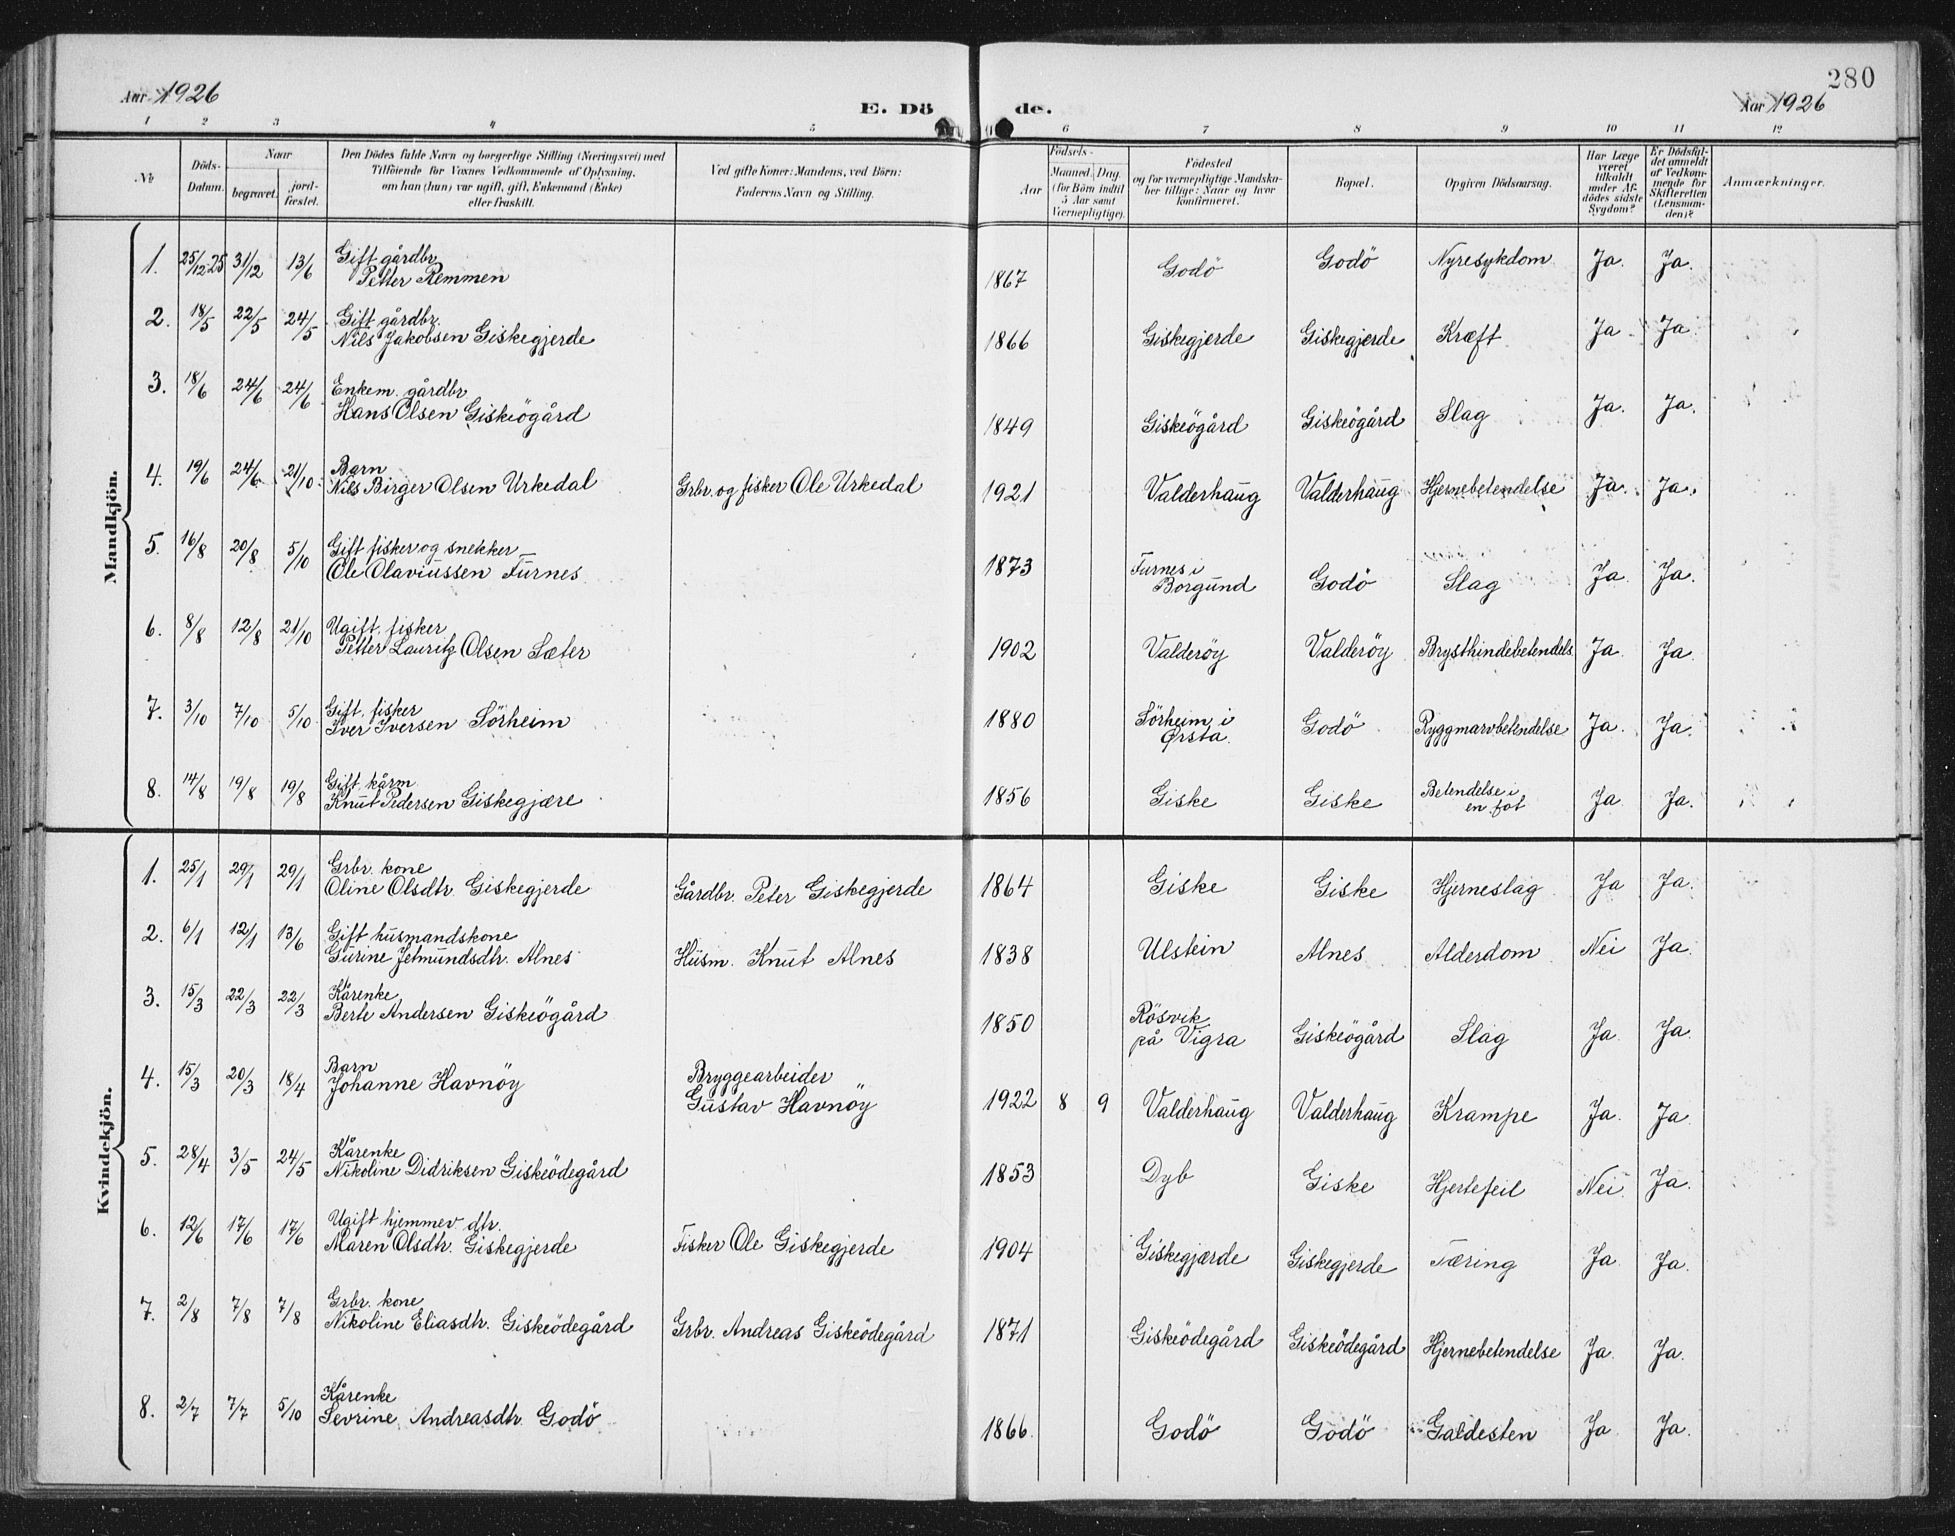 Aar 1926
E. Döde.
Aar 1926
280
1 2 3 4 5 6 7 8 9 10 11 12
No
Döds-Datum.
Naar
begravet.
jord-fæstet.
Den Dödes fulde Navn og borgerlige Stilling (Næringsvei) med
Tilföiende for Voxnes Vedkommende af Oplysning,
om han (hun) var ugift, gift, Enkemand (Enke)
eller fraskilt.
Ved gifte Koner: Mandens, ved Börn:
Faderens Navn og Stilling.
Födsels-
Aar
Maaned. Dag.
(for Börn indtil
5 Aar samt
Værnepligtige).
Födested
og for værnepligtige Mandska-
ber tillige: Naar og hvor
konfirmeret.
Bopæl.
Opgiven Dödsaarsag.
Har Læge
været
tilkaldt
under Af-
dödes sidste
Sygdom?
Er Dödsfal-
det anmeldt
af Vedkom-
mende for
Skifteretten
(Lensman-
den)?
Anmærkninger.
Mandkjön.
1. 25/12 25 31/12 13/6 Gift gårdbr.
Petter Remmen 1867 Godö Godö Nyresykdom Ja. Ja.
2. 18/5 22/5 24/5 Gift gårdbr.
Nils Jakobsen Giskegjerde 1866 Giskegjerde Giskegjerde Kræft Ja Ja
3. 18/6 24/6 24/6 Enkem. gårdbr
Hans Olsen Giskeögård 1849 Giskeögård Giskeögård Slag Ja. Ja.
4. 19/6 24/6 21/10 Barn
Nils Birger Olsen Urkedal Grbr. og fisker Ole Urkedal 1921 Valderhaug Valderhaug Hjernebetendelse Ja. Ja.
5. 16/8 20/8 5/10 Gift fisker og snekker
Ole Olaviussen Furnes 1873 Furnes i
Borgund Godö Slag Ja. Ja.
6. 8/8 12/8 21/10 Ugift. fisker
Petter Lauritz Olsen Sæter 1902 Valderöy Valderöy Brysthindebetendels Ja. Ja.
7. 3/10 7/10 5/10 Gift. fisker
Iver Iversen Sörheim 1880 Sörheim i
Ørsta. Godö Ryggmarvbetendelse Ja. Ja.
8. 14/8 19/8 19/8 Gift kårm
Knut Pedersen Giskegjære 1856 Giske Giske Betendelse i
en fot Ja Ja.
Kvindekjön.
1. 25/1 29/1 29/1 Grbr. kone
Oline Olsdtr. Giskegjerde Gårdbr. Peter Giskegjerde 1864 Giske Giske Hjerneslag Ja Ja.
2. 6/1 12/1 13/6 Gift husmandskone
Gurine Jetmundsdtr. Alnes Husm. Knut Alnes 1838 Ulstein Alnes Alderdom Nei Ja.
3. 15/3 22/3 22/3 Kårenke
Berte Andersen Giskeögård 1850 Rösvik
på Vigra Giskeögård Slag Ja. Ja.
4. 15/3 20/3 18/4 Barn
Johanne Havnöy Bryggearbeider
Gustav Havnöy 1922 8 9 Valderhaug Valderhaug Krampe Ja. Ja
5. 28/4 3/5 24/5 Kårenke
Nikoline Didriksen Giskeödegård 1853 Dyb Giske Hjertefeil Nei Ja.
6. 12/6 17/6 17/6 Ugift hjemmev. dtr.
Maren Olsdtr. Giskegjerde Fisker Ole Giskegjerde 1904 Giskegjærde Giskegjerde Tæring Ja Ja.
7. 2/8 7/8 7/8 Grbr. kone
Nikoline Eliasdtr. Giskeödegård Grbr. Andreas Giskeödegård 1871 Giskeödegård Giskeödegård Hjernebetendelse Ja Ja.
8. 2/7 7/7 5/10 Kårenke
Sevrine Andreasdtr. Godö 1866. Godö Godö Galdesten Ja Ja.